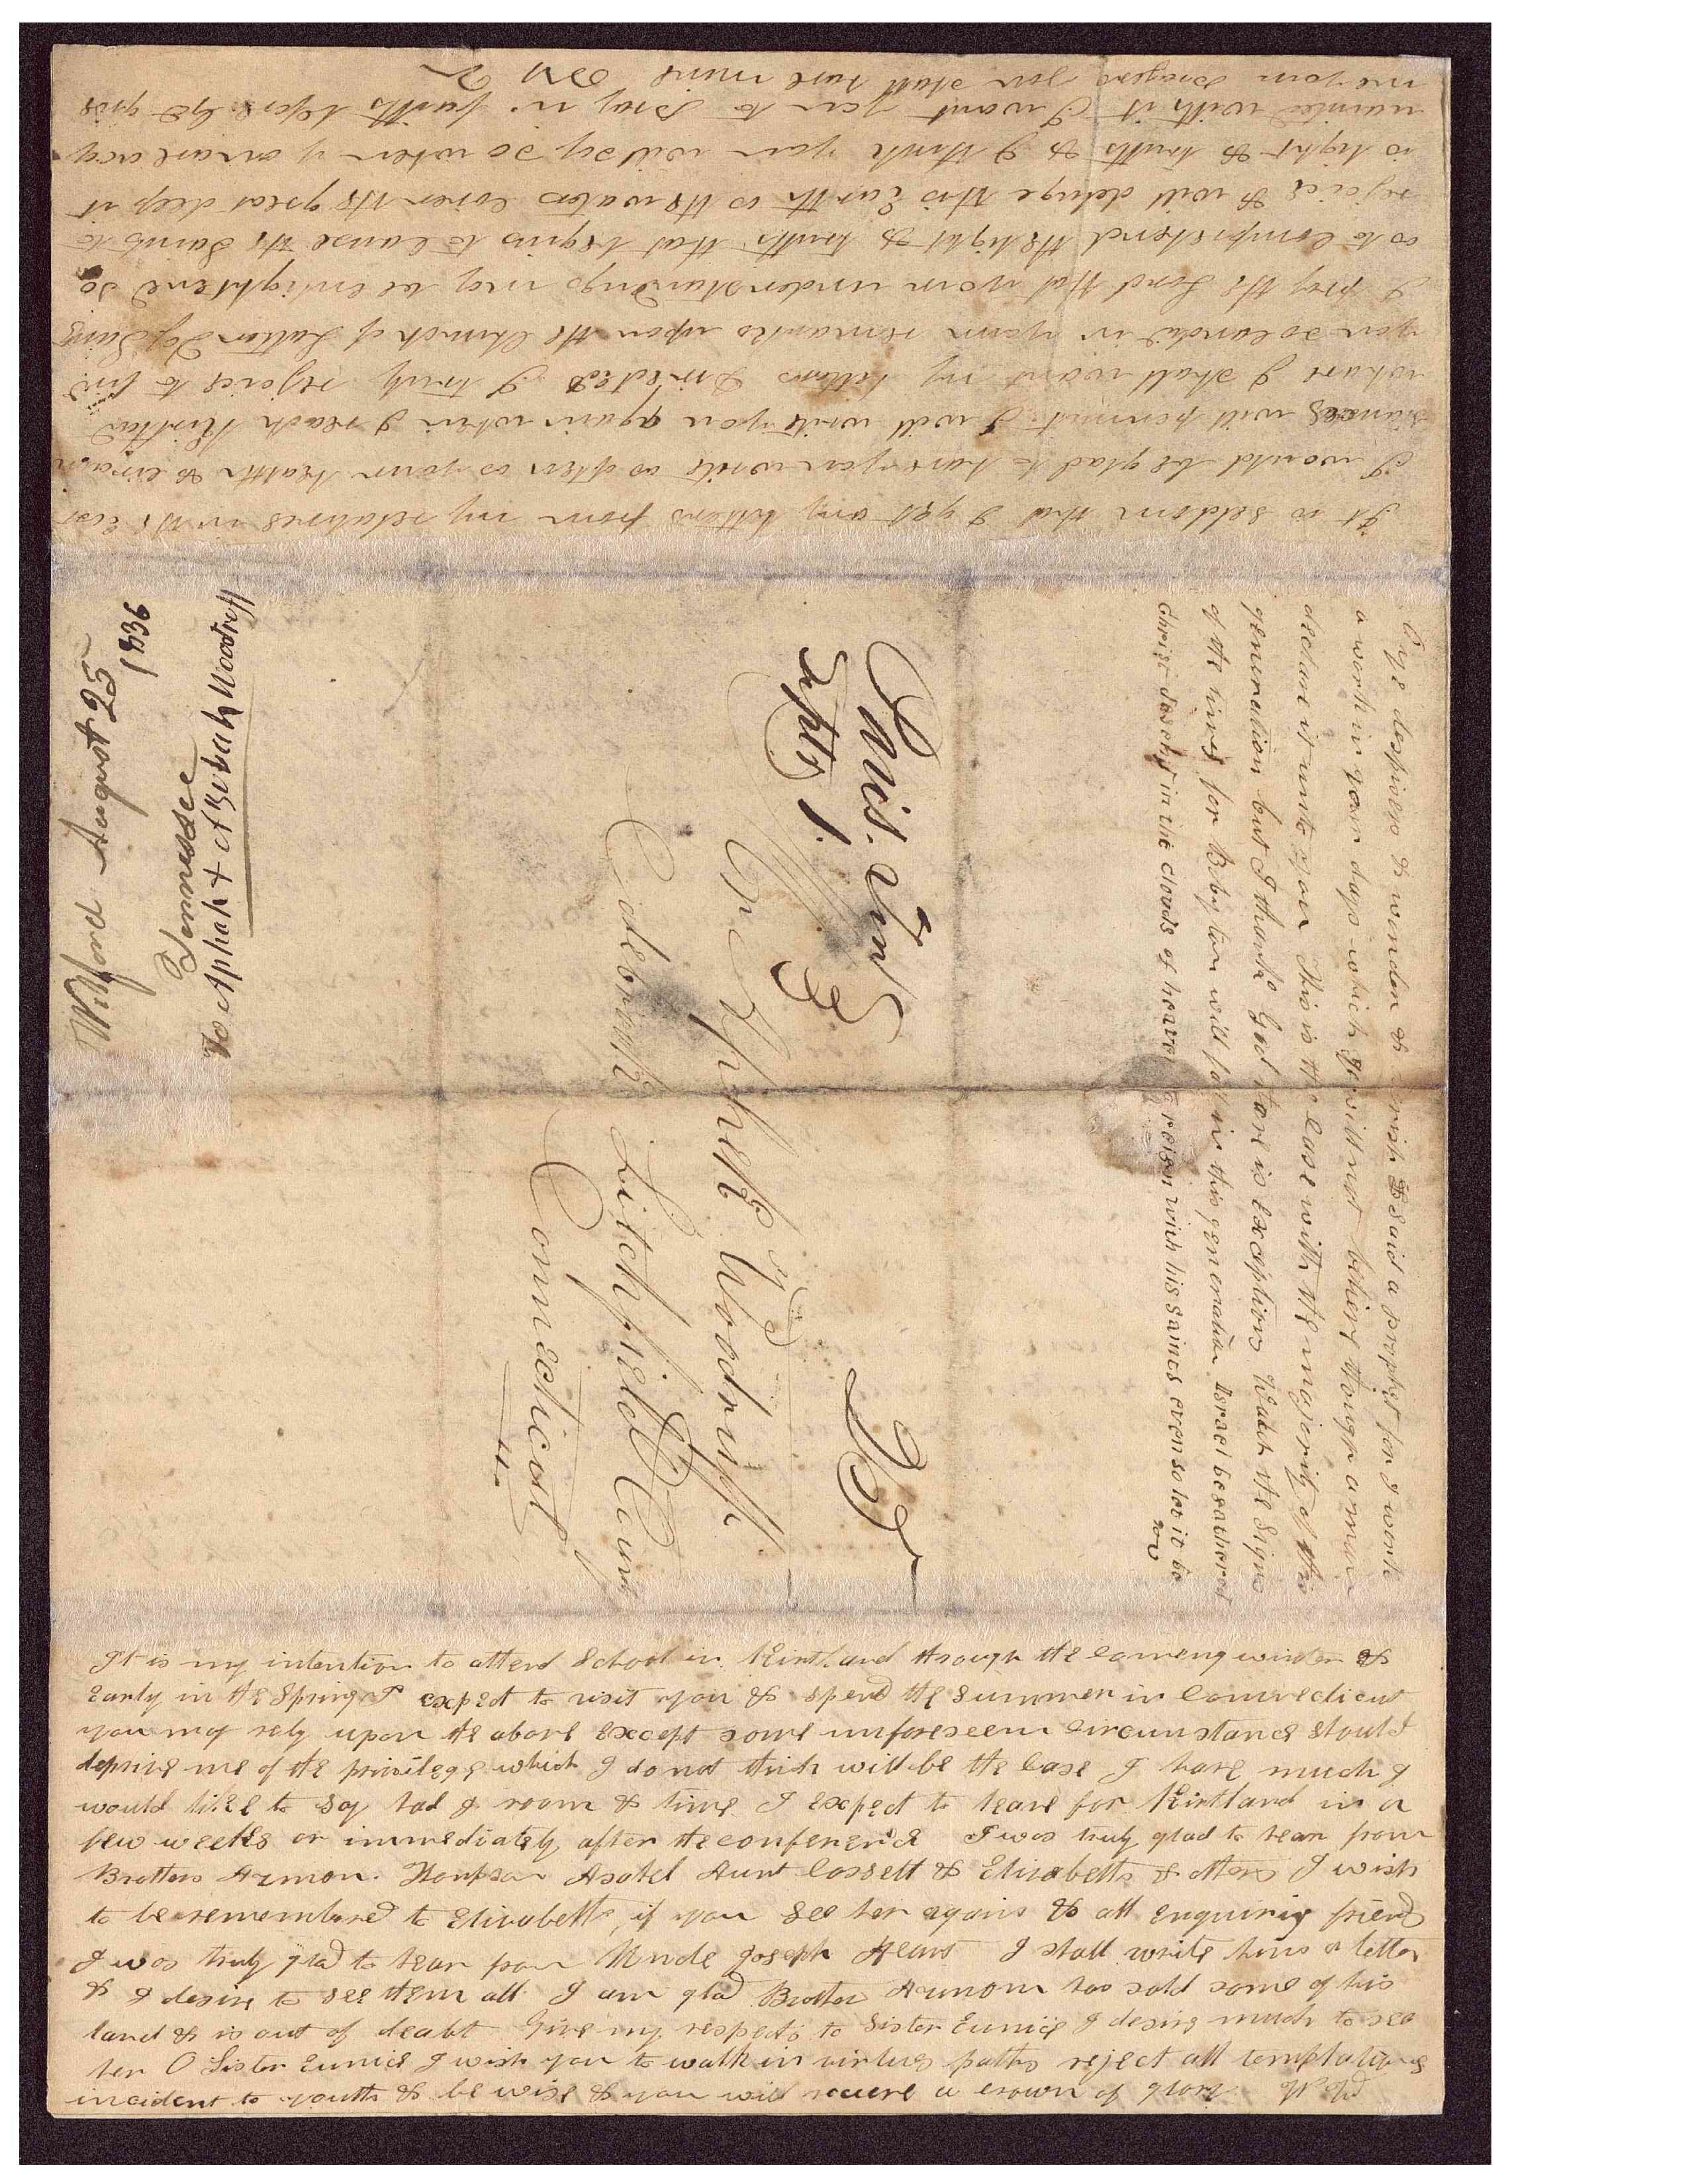 It is seldom that I get any letters from my relatives in the East
I would be glad to have you write as often as your health & circum
stances will permit. I will write you again when I reach Kirtland
whare I shall want my letters directed I truly rejoice to find
you so candid in your remarks upon the Church of Latter Day Saints
I pray the Lord that your understandings may be enlightened so
as to comprehend the light & truth that begins to cause the Saints to
rejoice & will deluge this Earth as the waters cover the great deep it
is light & truth & I think you will say so when you are acq
uainted with it I want you to pray in faith before God give
me your prayers you shall have mine WW
Wilford August 25
1836
Tennessee
To Aphah & A Bulah Woodruff
Savis. Ten
Sept 1.
25
Mr Aphek Woodruff
Colebrook Litchfield County
Connecticut
O ye despisers & wonder & perish Said a prophet for I work
a work in your days which ye will not believe though a man
declare it unto you This is the case with the majority of this
generation but I thank God thare is exceptions Watch the Signs
of the times for Babylon will fall in this generation Israel be gathered
Christ descend in the clouds of heaven & reign with his saints even so let it be
WW
It is my intention to attend School in Kirtland through the comeing winter &
Early in the Spring I expect to visit you & spend the Summer in Connecticut
you may rely upon the above except some unforeseen circumstance should
deprive me of the privilege which I do not think will be the case I have much I
would like to say had I room & time I expect to leave for Kirtland in a
few weeks or immediately after the conference I was truly glad to hear from
Brothers Azmon. Thompson Asahel Aunt Cossett & Elizabeth & others I wish
to be remembered to Elizabeth if you see her again & all enquiring friends
I was truly glad to hear from Uncle Joseph Hearts I shall write him a letter
& I desire to see them all I am glad Brother Azmon has sold some of his
land & is out of deabt Give my respects to Sister Eunice I desire much to see
her O Sister Eunice I wish you to walk in virtues paths reject all temptations
incident to youth & be wise & you will receive a crown of glory W Wd